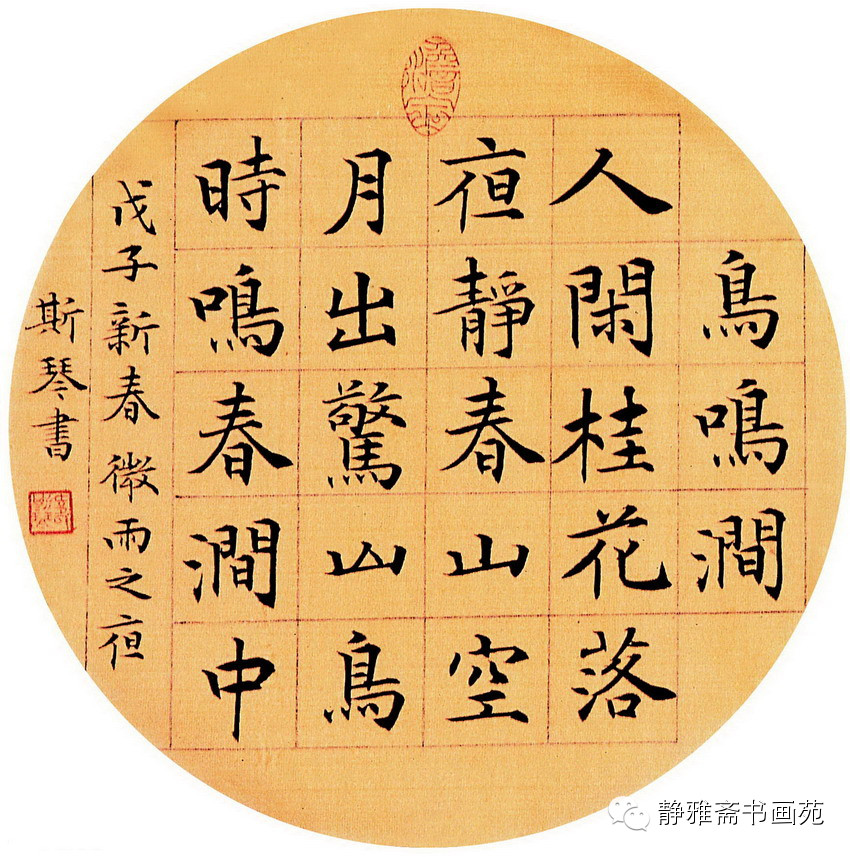 鳥鳴澗
人閑桂花落
夜靜春山空
月出驚山鳥
時鳴春澗中
戊子新春微雨之夜
斯琴書
静雅斋书画苑